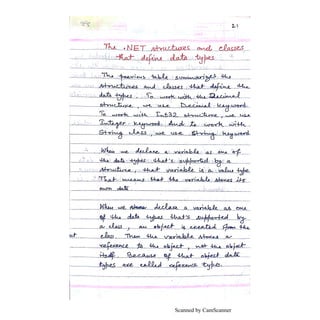 21
The .NET structures and classes
that define data types
The previous table summarizes the
structures and classes that define the
data types. To work with the Decimal
structure, we use Decimal keyword
To work with Int32 structure, we use
Integer keyword. And to work with
String class, we use String keyword
When we declare a variable as one of
the data types that's supported by a
structure, that variable is a value type
That means that the variable stores its
own data
When we declare a variable as one
of the data types that's supported by
a class, an object is created from the
class. Then the variable stores a
reference to the object, not the object
itself. Because of that object data
types are called reference types.
Scanned by CamScanner